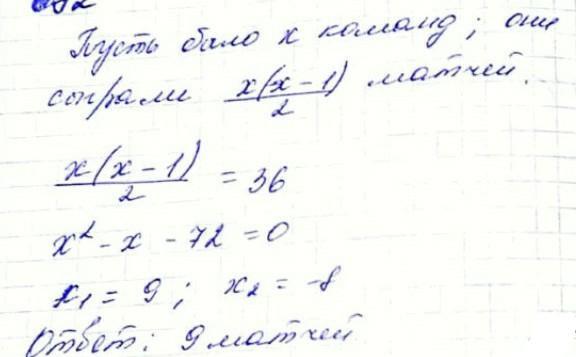 Пусть было x команд; они
сыграли x(x-1)/2 матчей.
x(x-1)/2 = 36
x² - x - 72 = 0
x₁ = 9; x₂ = -8
Ответ: 9 матчей